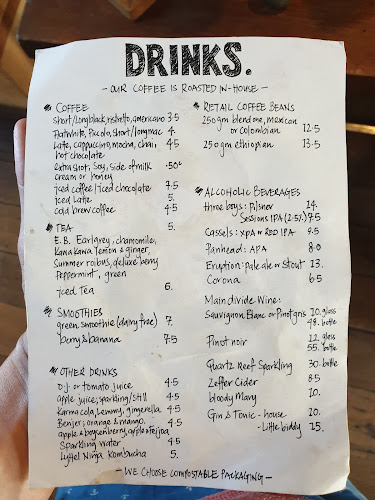 DRINKS.
- OUR COFFEE IS ROASTED IN-HOUSE -
COFFEE
short/long black, ristretto, americano 3.5
Flatwhite, Piccolo, short/long mac 4.
Late, cappuccino, mocha, chai, 4.5
hot chocolate
extra shot, soy, side of milk .50¢
cream or honey
iced coffee/iced chocolate 7.5
iced Late 5.
cold brew coffee 4.5
TEA 5.
E.B. Earlgrey, chamomile,
Kawa Kawa lemon & ginger,
Summer roibus, deluxe berry
Peppermint, green
iced Tea 6.
SMOOTHIES
green smoothie (dairy free) 7.
berry & banana 7.5
OTHER DRINKS
O.J. or tomato juice 4.5
apple juice, sparkling/still 4.5
Karma cola, Lemmy, gingerella 4.5
Benjer; orange & mango, 4.5
apple & boysenberry, apple & feijoa
Sparkling water 4.5
Lyttel Ninja Kombucha 5.
RETAIL COFFEE BEANS
250gm blend one, mexican
or colombian 12.5
250gm ethiopian 13.5
ALCOHOLIC BEVERAGES
three boys: Pilsner 14.
Sessions IPA (2.5%) 7.5
Cassels: XPA or RED IPA 9.5
Panhead: APA 8.0
Eruption: pale ale or Stout 13.
Corona 6.5
Main divide Wine:
Sauvignon Blanc or Pinot gris 10. glass
48. bottle
Pinot noir 12. glass
55. bottle
Quartz Reef Sparkling 30. bottle
Zeffer Cider 8.5
bloody Mary 10.
Gin & Tonic - house 10.
- Little biddy 15.
- WE CHOOSE COMPOSTABLE PACKAGING -